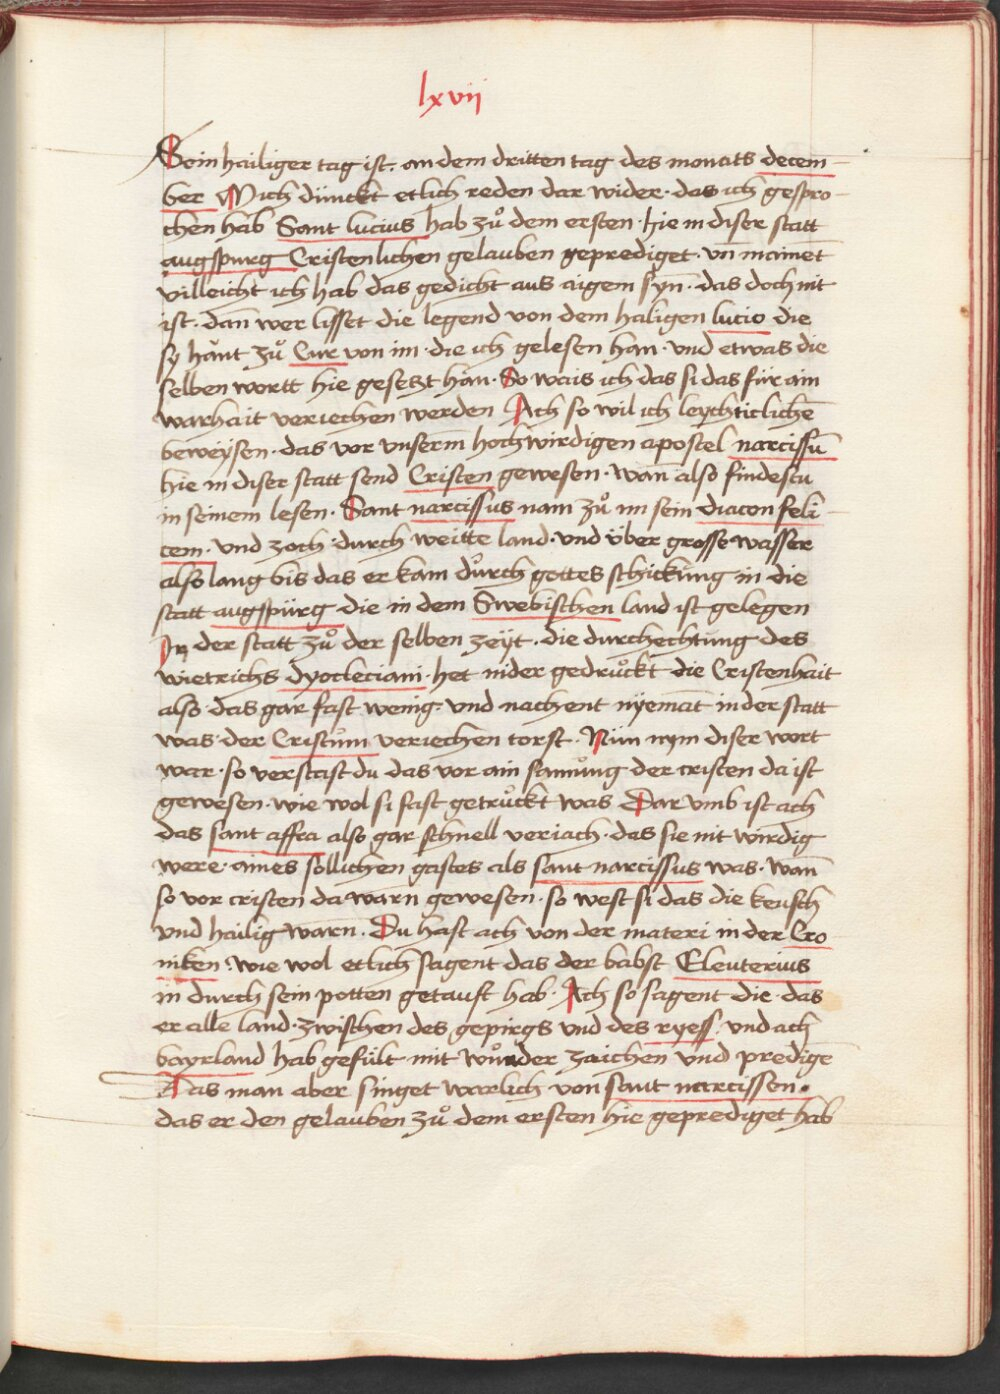 lxvii
Sein hailiger tag ist. an dem dritten tag des monats decem-
ber Mich dünckt etlich reden dar wider. das ich gespro-
chen hab Sant lucius hab zů dem ersten. hie in diser statt
augspurg Cristenlichen gelauben geprediget. vn̄ mainet
villeicht ich hab das gedicht aus aigem syn. das doch nit
ist. dan̄ wer lisset die legend von dem haligen lucio die
sy hånt zů Cur von im. die ich gelesen han. vnd etwas die
selben wortt hie gesetzt han. So wais ich das si das für ain
warhait veriechen werden Ach so wil ich leychticlichē
beweÿsen. das vor vnserm hochwirdigen apostel narcissū
hie in diser statt send Cristen gewesen. wan̄ also findestu
in seinem lesen. Sant narcissus nam zů im sein diacon feli-
cem. vnd zoch durch weitte land. vnd über grosse wasser
also lang bis das er kam dürch gottes schickung in die
statt augspürg die in dem Swebischen land ist gelegen
In der statt zů der selben zeÿt. die durchechtung des
wietrichs dyocleciani. het nider gedrůckt die Cristenhait
also das gar fast wenig. vnd nachent nyemāt in der statt
was der Cristům veriechen torst. Nun nym diser wort
war. so verstast du das vor ain samůng der cristen da ist
gewesen. wie wol si fast getrůckt was Dar vmb ist ach
das sant affra also gar schnell veriach. das sie nit wirdig
were. aines sollichen gastes als sant narcissus was. wan̄
so vor cristen da warn gewesen. so west si das die keusch
vnd hailig warn. Du hast ach von der materi in der Cro
niken. wie wol etlich sagent das der babst Eleuterius
in durch sein potten getauft hab. Ach so sagent die. das
er alle land. zwischen des gepirgs vnd des ryess. vnd ach
bayrland hab gefült mit wůnder zaichen vnd predigē
Das man aber singet warlich von sant narcissen.
das er den gelauben zů dem ersten hie geprediget hab